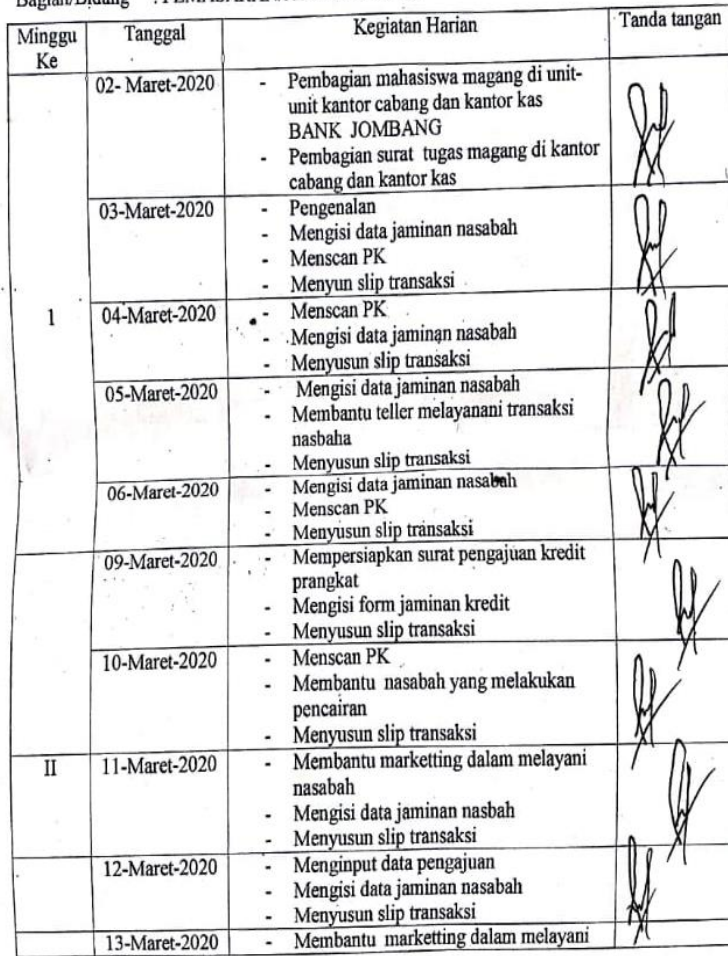 Bagian/Bidung :
Minggu Ke Tanggal Kegiatan Harian Tanda tangan
1
02- Maret-2020
- Pembagian mahasiswa magang di unit-
unit kantor cabang dan kantor kas
BANK JOMBANG
- Pembagian surat tugas magang di kantor
cabang dan kantor kas
03-Maret-2020
- Pengenalan
- Mengisi data jaminan nasabah
- Menscan PK
- Menyun slip transaksi
04-Maret-2020
- Menscan PK
- Mengisi data jaminan nasabah
- Menyusun slip transaksi
05-Maret-2020
- Mengisi data jaminan nasabah
- Membantu teller melayanani transaksi
nasbaha
- Menyusun slip transaksi
06-Maret-2020
- Mengisi data jaminan nasabah
- Menscan PK
- Menyusun slip transaksi
09-Maret-2020
- Mempersiapkan surat pengajuan kredit
prangkat
- Mengisi form jaminan kredit
- Menyusun slip transaksi
10-Maret-2020
- Menscan PK
- Membantu nasabah yang melakukan
pencairan
- Menyusun slip transaksi
II
11-Maret-2020
- Membantu marketting dalam melayani
nasabah
- Mengisi data jaminan nasbah
- Menyusun slip transaksi
12-Maret-2020
- Menginput data pengajuan
- Mengisi data jaminan nasabah
- Menyusun slip transaksi
13-Maret-2020
- Membantu marketting dalam melayani